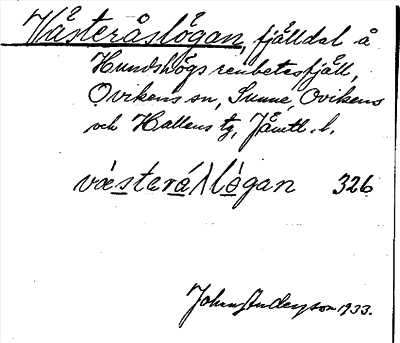 Västeråslågan, fjälldal å
Hundshögs renbetesfjäll,
Ovikens sn, Sunne, Ovikens
och Hallens tg, Jämtl. l.
västerå)lågan 326
John Anderson 1933.